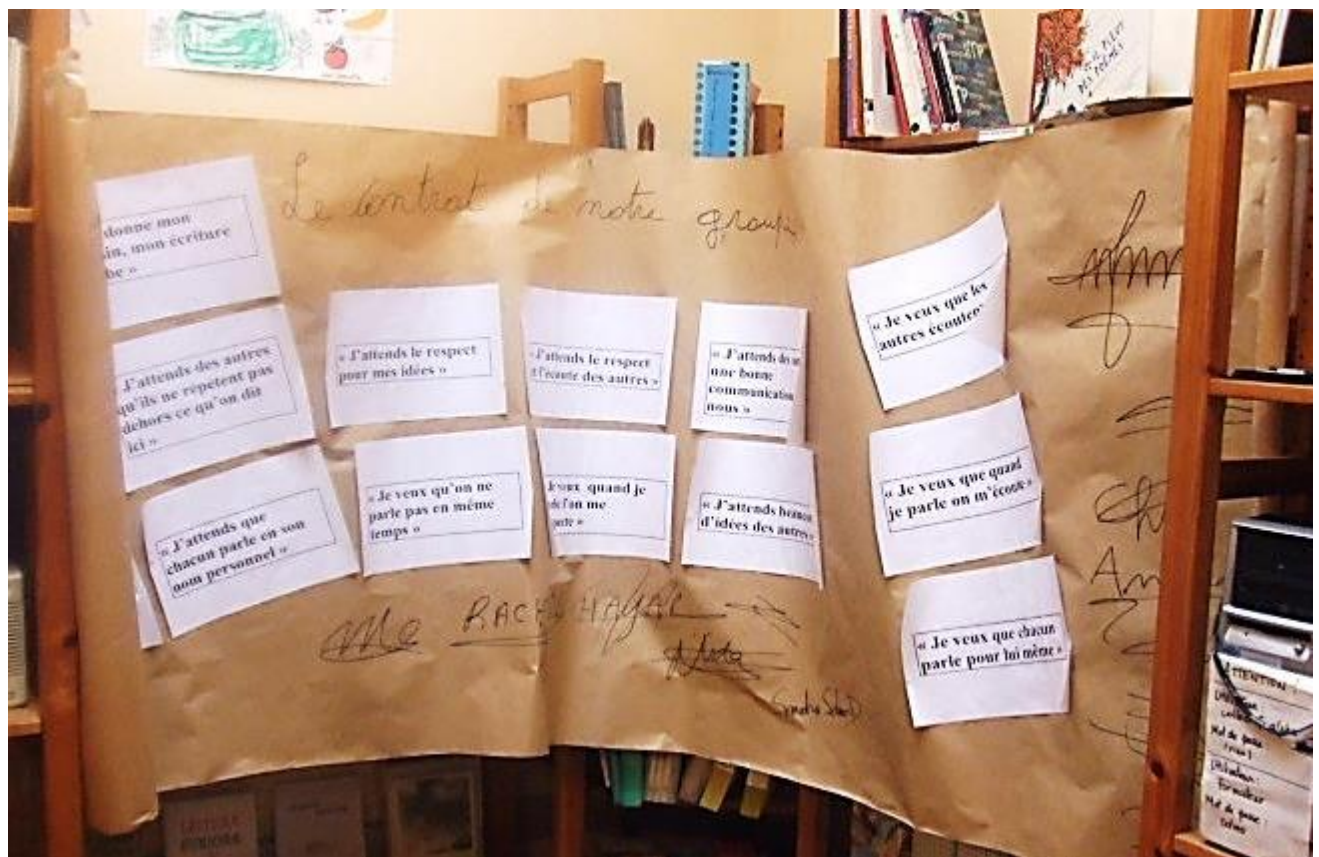 Le contrat de notre groupe
donne mon
in, mon écriture
be »
J'attends des autres
qu'ils ne répetent pas
dehors ce qu'on dit
ici »
« J'attends que
chacun parle en son
nom personnel »
« J'attends le respect
pour mes idées »
« Je veux qu'on ne
parle pas en même
temps »
« J'attends le respect
et l'écoute des autres »
Je veux quand je
l'on me
« J'attends des
une bonne
communication
nous »
« J'attends beaucou
d'idées des autres »
« Je veux que les
autres écouten
« Je veux que quand
je parle on m'écoute »
« Je veux que chacun
parle pour lui même »
Me
An
DES POÈMES
ATTENTION :
Mot de passe
Utilisateur :
formateur
Mot de passe